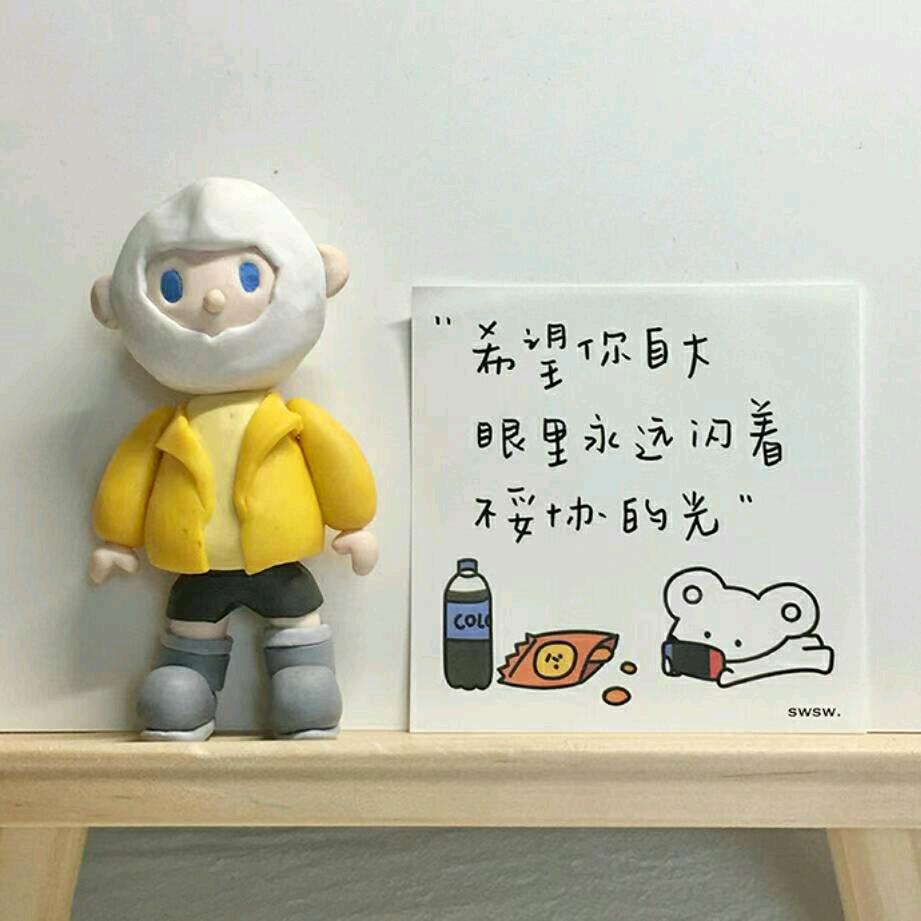 "希望你自大
眼里永远闪着
不妥协的光"
COLC
swsw.